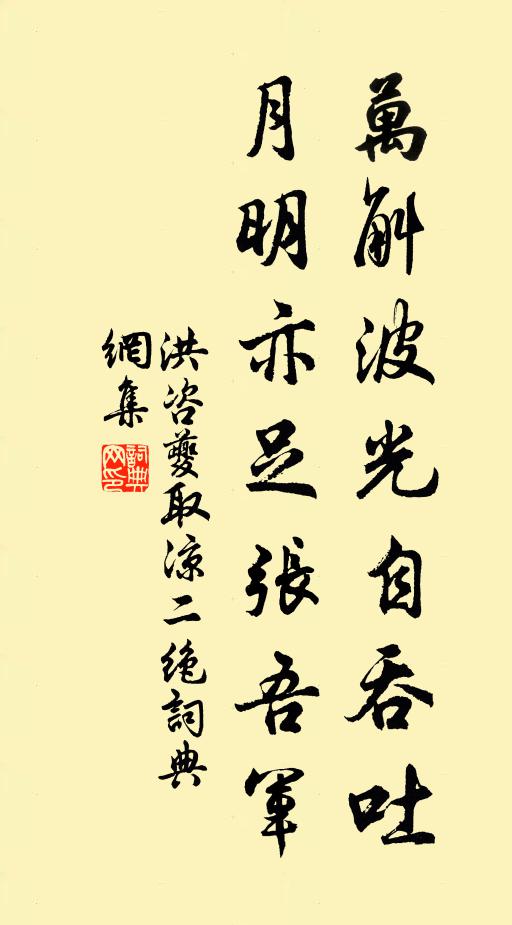 萬斛波光自吞吐
月明亦足張吾軍
洪咨夔取涼二絶詞典
網集
詞典
网印